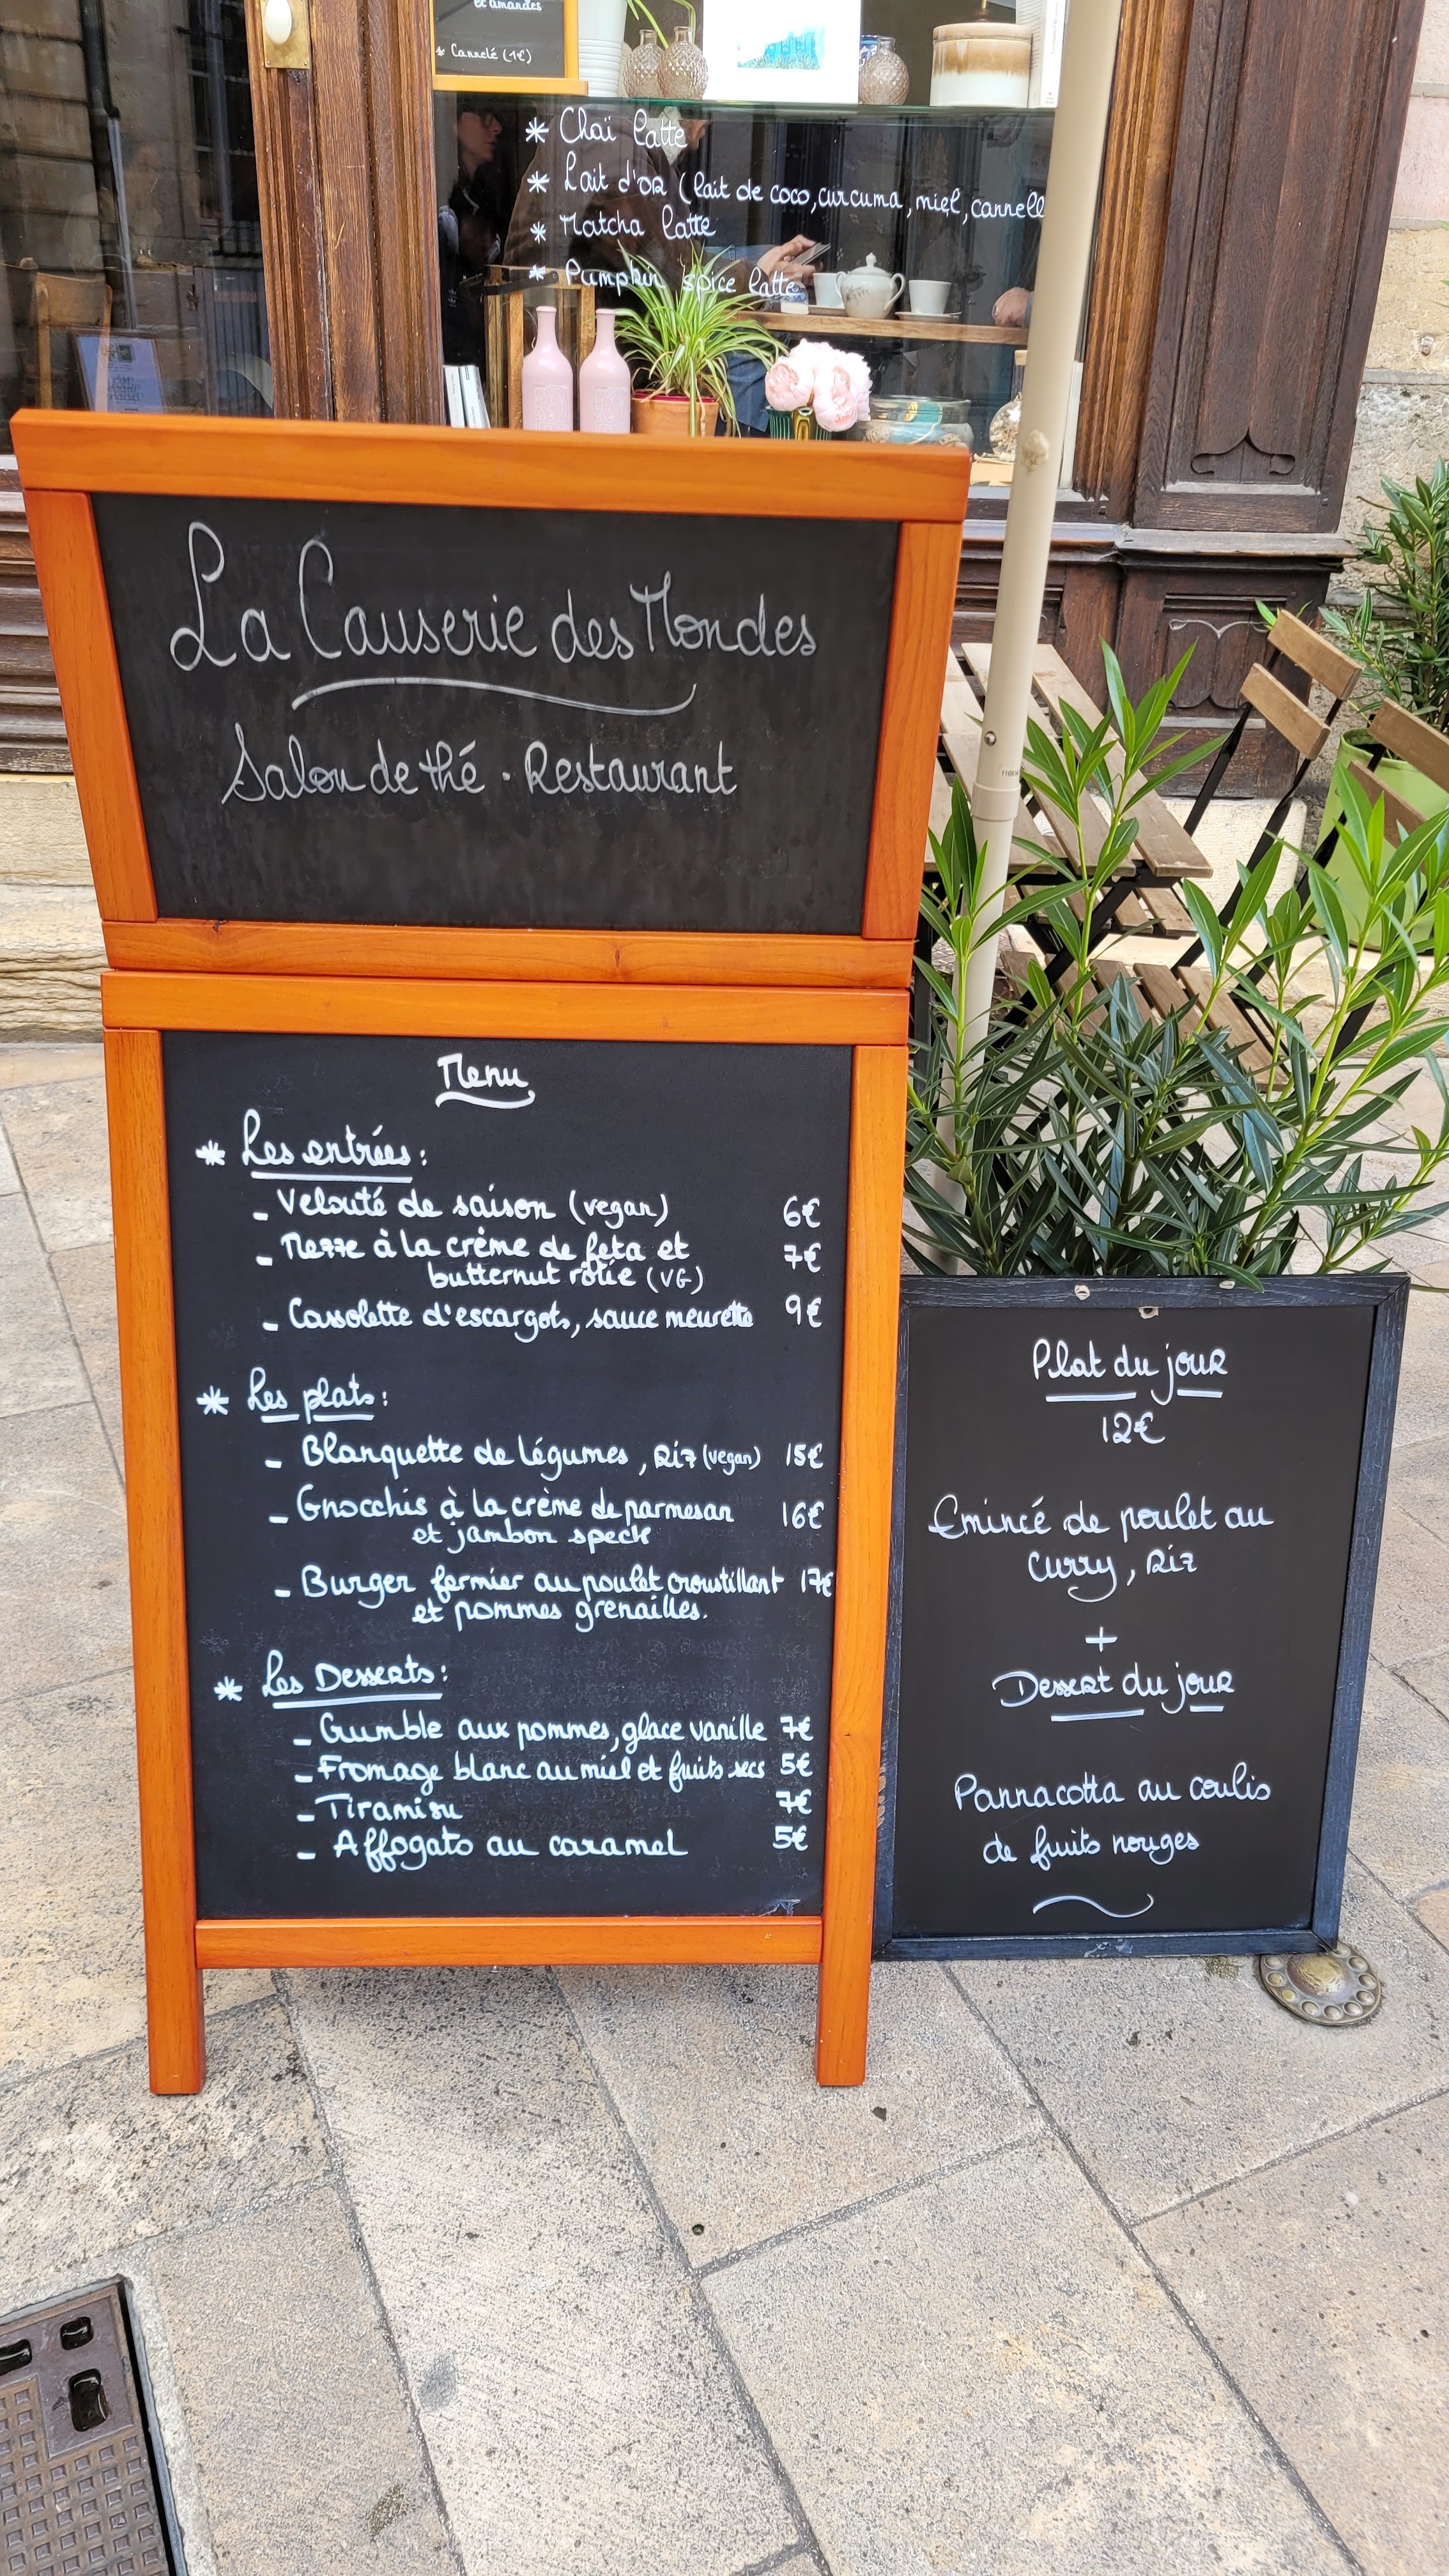 et amandes
* Cannelé (1€)
* Chaï latte
* Lait d'or (lait de coco, curcuma, miel, cannell
* Matcha latte
* Pumpkin spice latte
La Causerie des Mondes
Salon de thé · Restaurant
Menu
* Les entrées :
- Velouté de saison (vegan) 6€
- Mezze à la crème de feta et 7€
butternut rôtie (VG)
- Cassolette d'escargots, sauce meurette 9€
* Les plats :
- Blanquette de légumes, Riz (vegan) 15€
- Gnocchis à la crème de parmesan 16€
et jambon speck
- Burger fermier au poulet croustillant 17€
et pommes grenailles.
* Les Desserts :
- Crumble aux pommes, glace vanille 7€
- Fromage blanc au miel et fruits secs 5€
- Tiramisu 7€
- Affogato au caramel 5€
Plat du jour
12€
Emincé de poulet au
Curry, Riz
+
Dessert du jour
Pannacotta au coulis
de fruits rouges